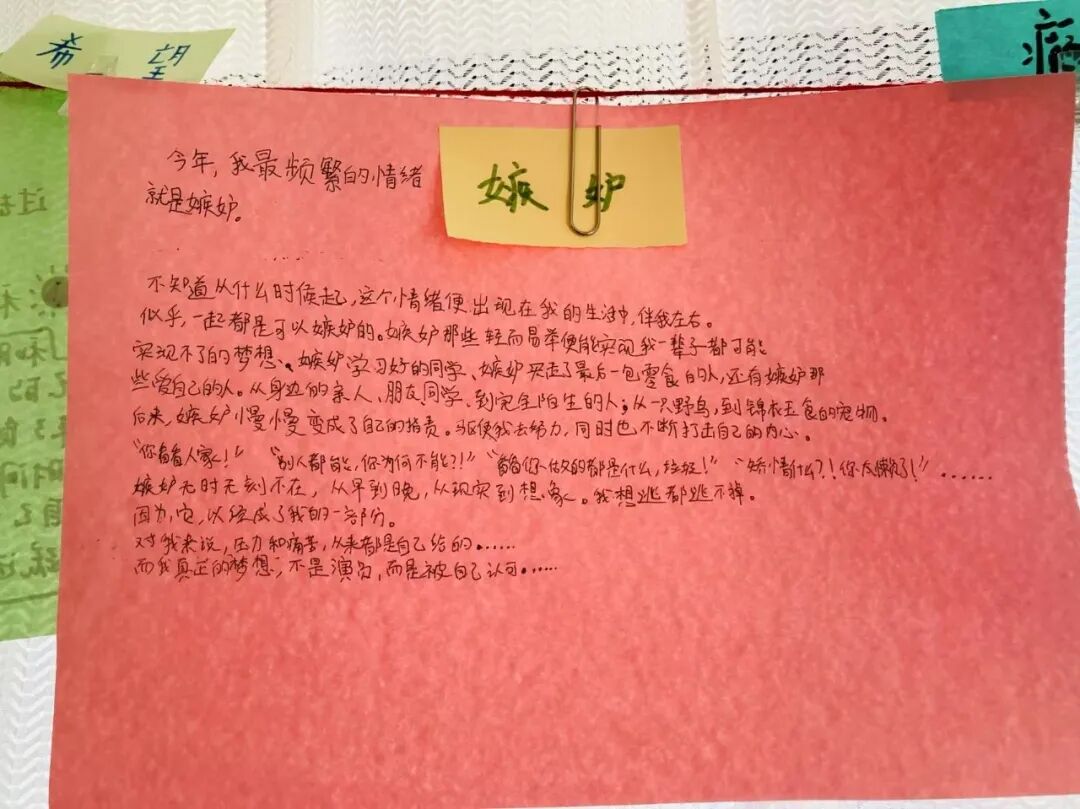 希望
嫉妒
今年，我最频繁的情绪
就是嫉妒。
不知道从什么时候起，这个情绪便出现在我的生活中，伴我左右。
似乎，一起都是可以嫉妒的。嫉妒那些轻而易举便能实现我一辈子都可能
实现不了的梦想、嫉妒学习好的同学、嫉妒买走了最后一包零食的人，还有嫉妒那
些爱自己的人。从身边的亲人、朋友同学、到完全陌生的人；从一只野鸟，到锦衣玉食的宠物。
后来，嫉妒慢慢变成了自己的指责。驱使我去努力，同时也不断打击自己的内心。
“你看看人家！” “别人都能，你为何不能？！” “看看你做的都是什么，垃圾！” “矫情什么？！你太懒了！” ……
嫉妒无时无刻不在，从早到晚，从现实到想象。我想逃都逃不掉。
因为，它，以经成了我的一部分。
对我来说，压力和痛苦，从来都是自己给的……
而我真正的梦想，不是演员，而是被自己认可……